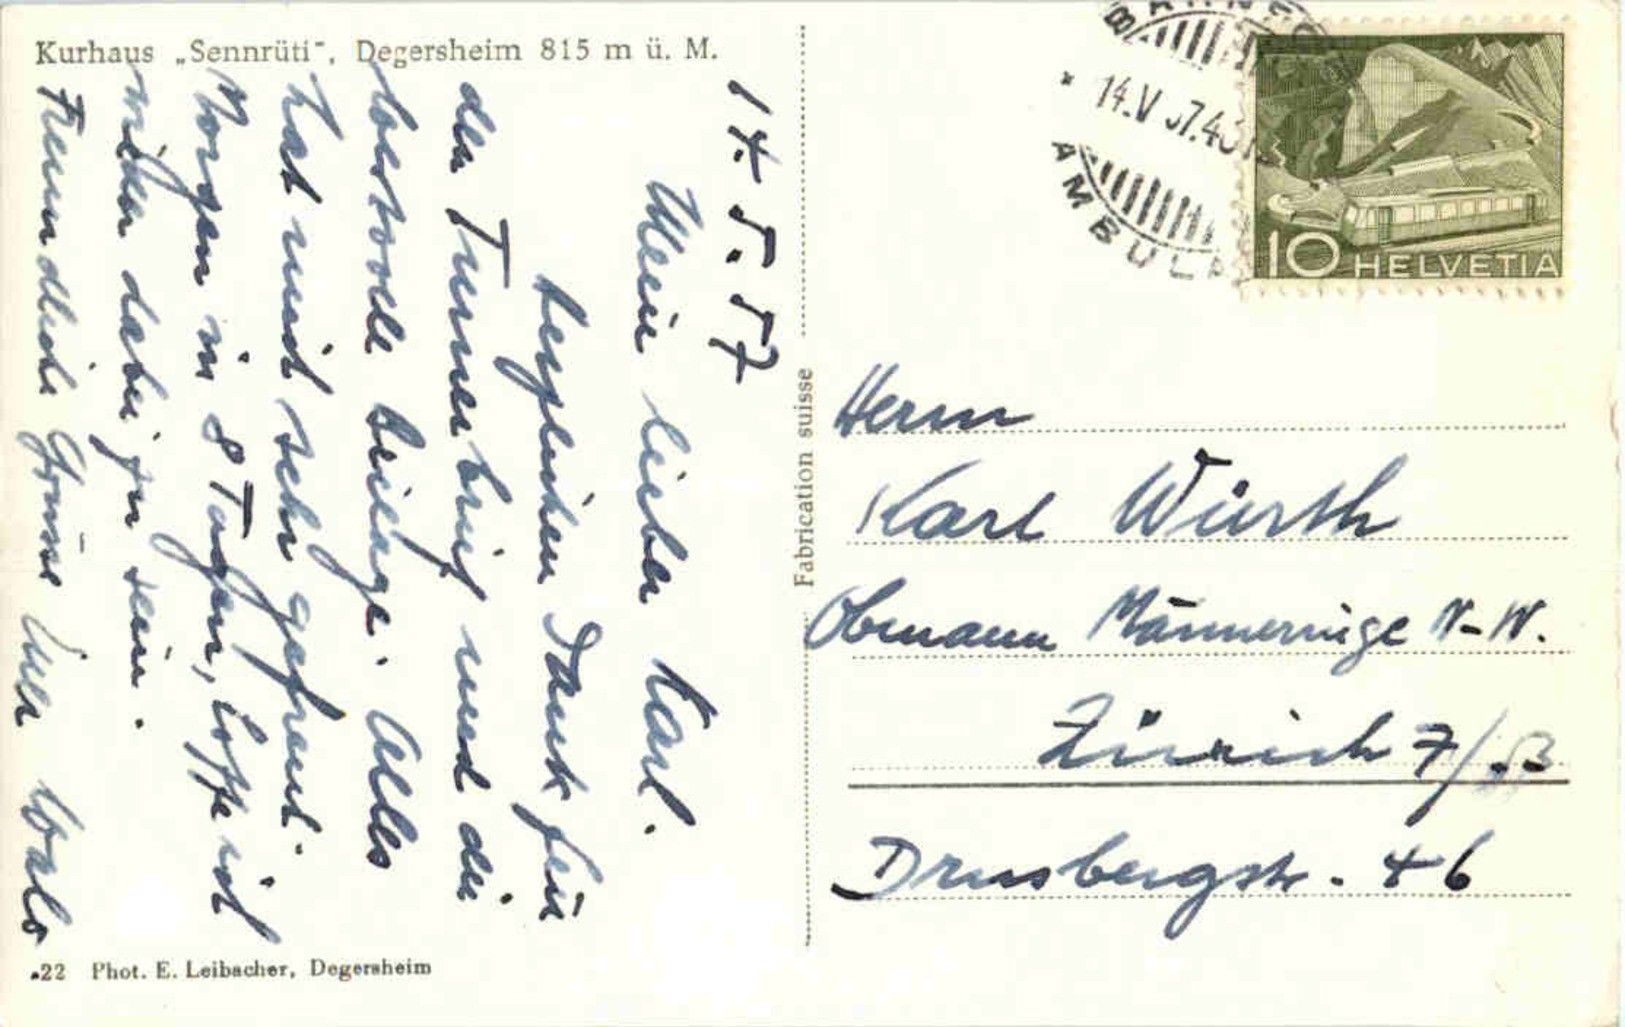 Kurhaus „Sennrüti", Degersheim 815 m ü. M.
14. 5. 57
Mein lieber Karl.
herzlichen Dank für
den Turnerbrief und die
wertvolle Beilage. Alles
hat mich sehr gefreut.
Morgen in 8 Tagen, hoffe ich
wieder dabei zu sein.
Freundliche Grüsse Euer
22 Phot. E. Leibacher, Degersheim
Fabrication suisse
14.V 57.
AMBULA
10 HELVETIA
Herrn
Karl Würth
Obmann Männerriege N-W.
Zürich 7/53
Drusbergstr. 46